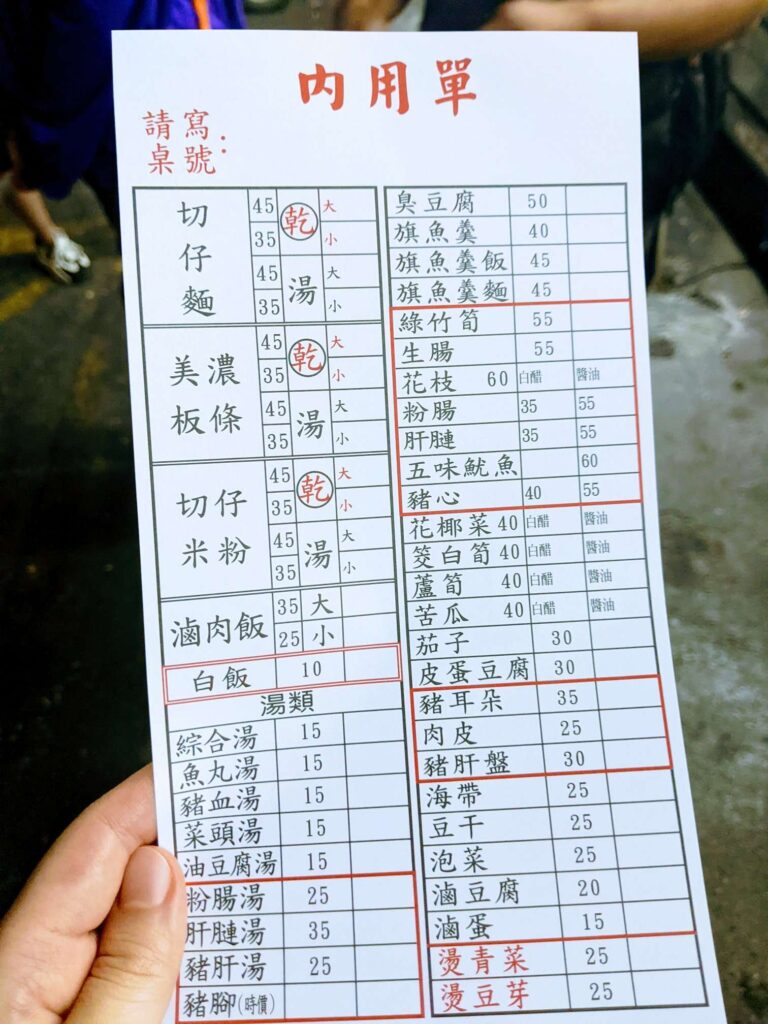 內用單
請寫
桌號：
切仔麵
45 乾 大
35 小
45 湯 大
35 小
美濃板條
45 乾 大
35 小
45 湯 大
35 小
切仔米粉
45 乾 大
35 小
45 湯 大
35 小
滷肉飯
35 大
25 小
白飯 10
湯類
綜合湯 15
魚丸湯 15
豬血湯 15
菜頭湯 15
油豆腐湯 15
粉腸湯 25
肝腱湯 35
豬肝湯 25
豬腳(時價)
臭豆腐 50
旗魚羹 40
旗魚羹飯 45
旗魚羹麵 45
綠竹筍 55
生腸 55
花枝 60 白醋 醬油
粉腸 35 55
肝腱 35 55
五味魷魚 60
豬心 40 55
花椰菜 40 白醋 醬油
筊白筍 40 白醋 醬油
蘆筍 40 白醋 醬油
苦瓜 40 白醋 醬油
茄子 30
皮蛋豆腐 30
豬耳朵 35
肉皮 25
豬肝盤 30
海帶 25
豆干 25
泡菜 25
滷豆腐 20
滷蛋 15
燙青菜 25
燙豆芽 25